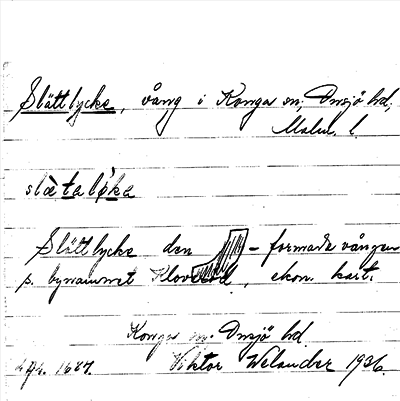 Slättlycke, vång i Konga sn, Onsjö hd,
Malm. l.
slàtalýka
Slättlycke den - formade vången
s. bynamnet Kloveröd, ekon. kart.
Konga sn. Onsjö hd
Viktor Welander 1936.